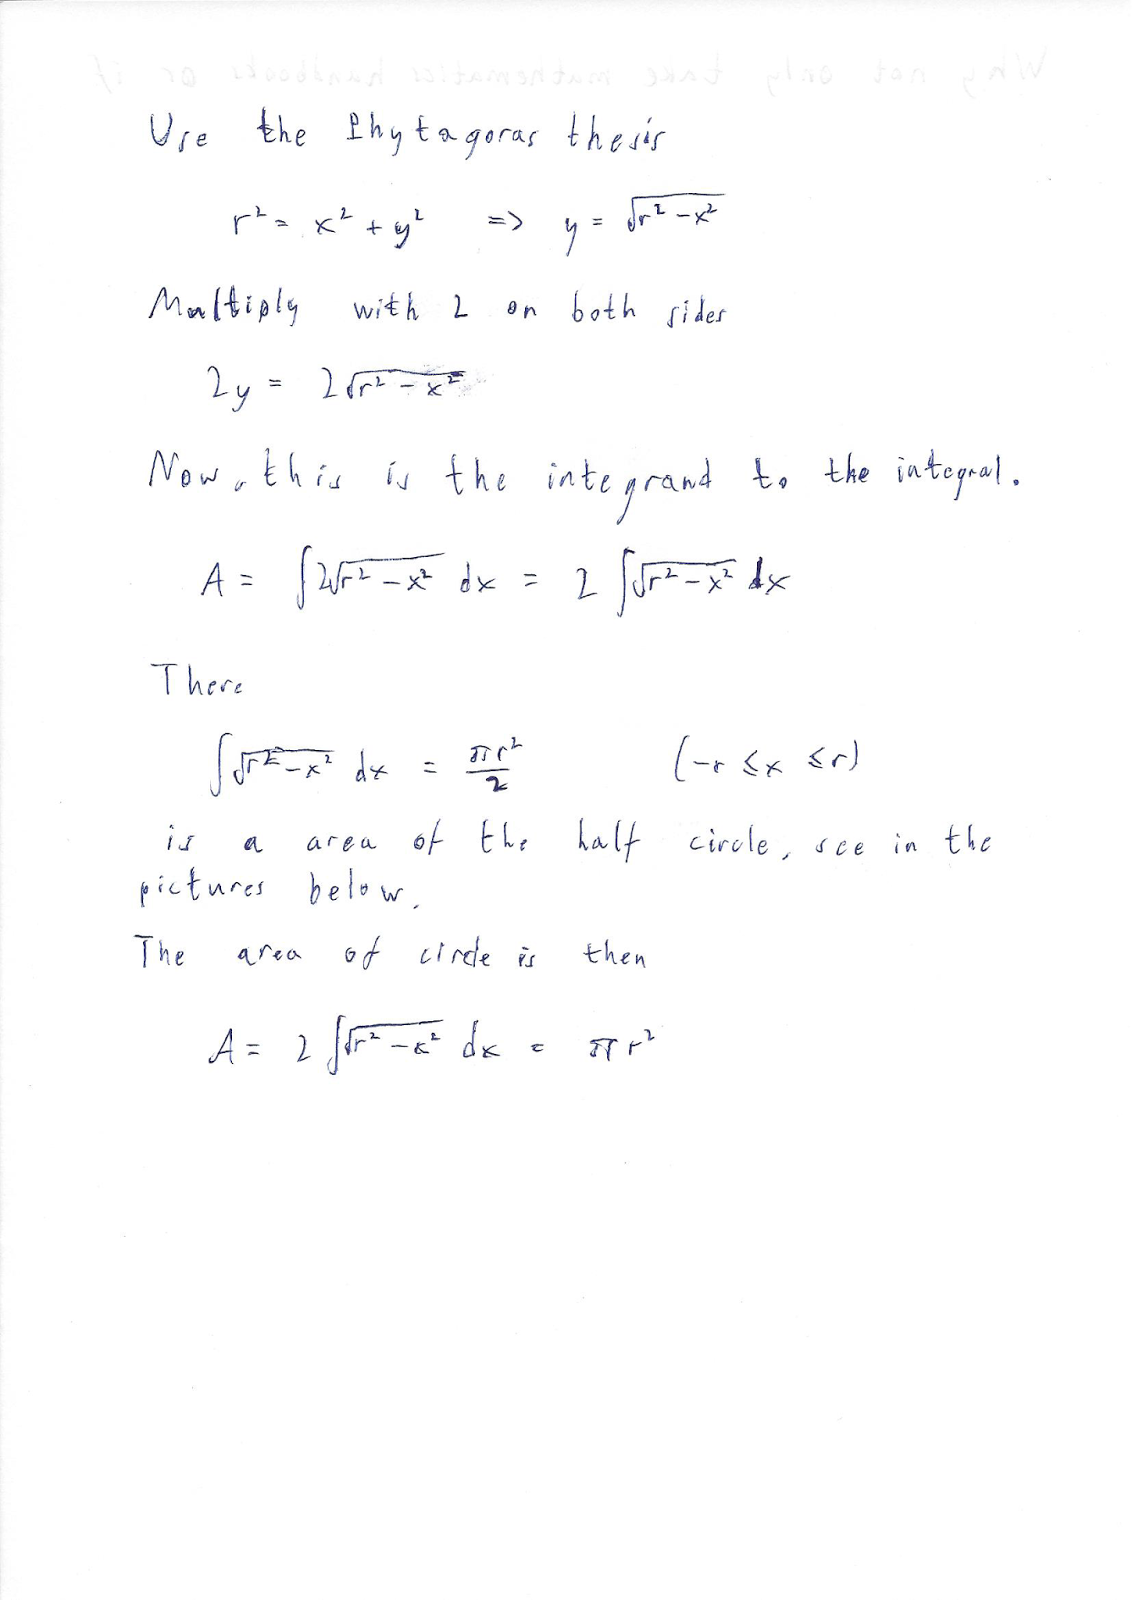 Why not only take mathematics handbooks or if
Use the Phytagoras thesis
r² = x² + y² => y = √(r² - x²)
Multiply with 2 on both sides
2y = 2√(r² - x²)
Now, this is the integrand to the integral.
A = ∫2√(r² - x²) dx = 2 ∫√(r² - x²) dx
There
∫√(r² - x²) dx = πr²/2 (-r ≤ x ≤ r)
is a area of the half circle, see in the
pictures below.
The area of circle is then
A = 2 ∫√(r² - x²) dx = πr²